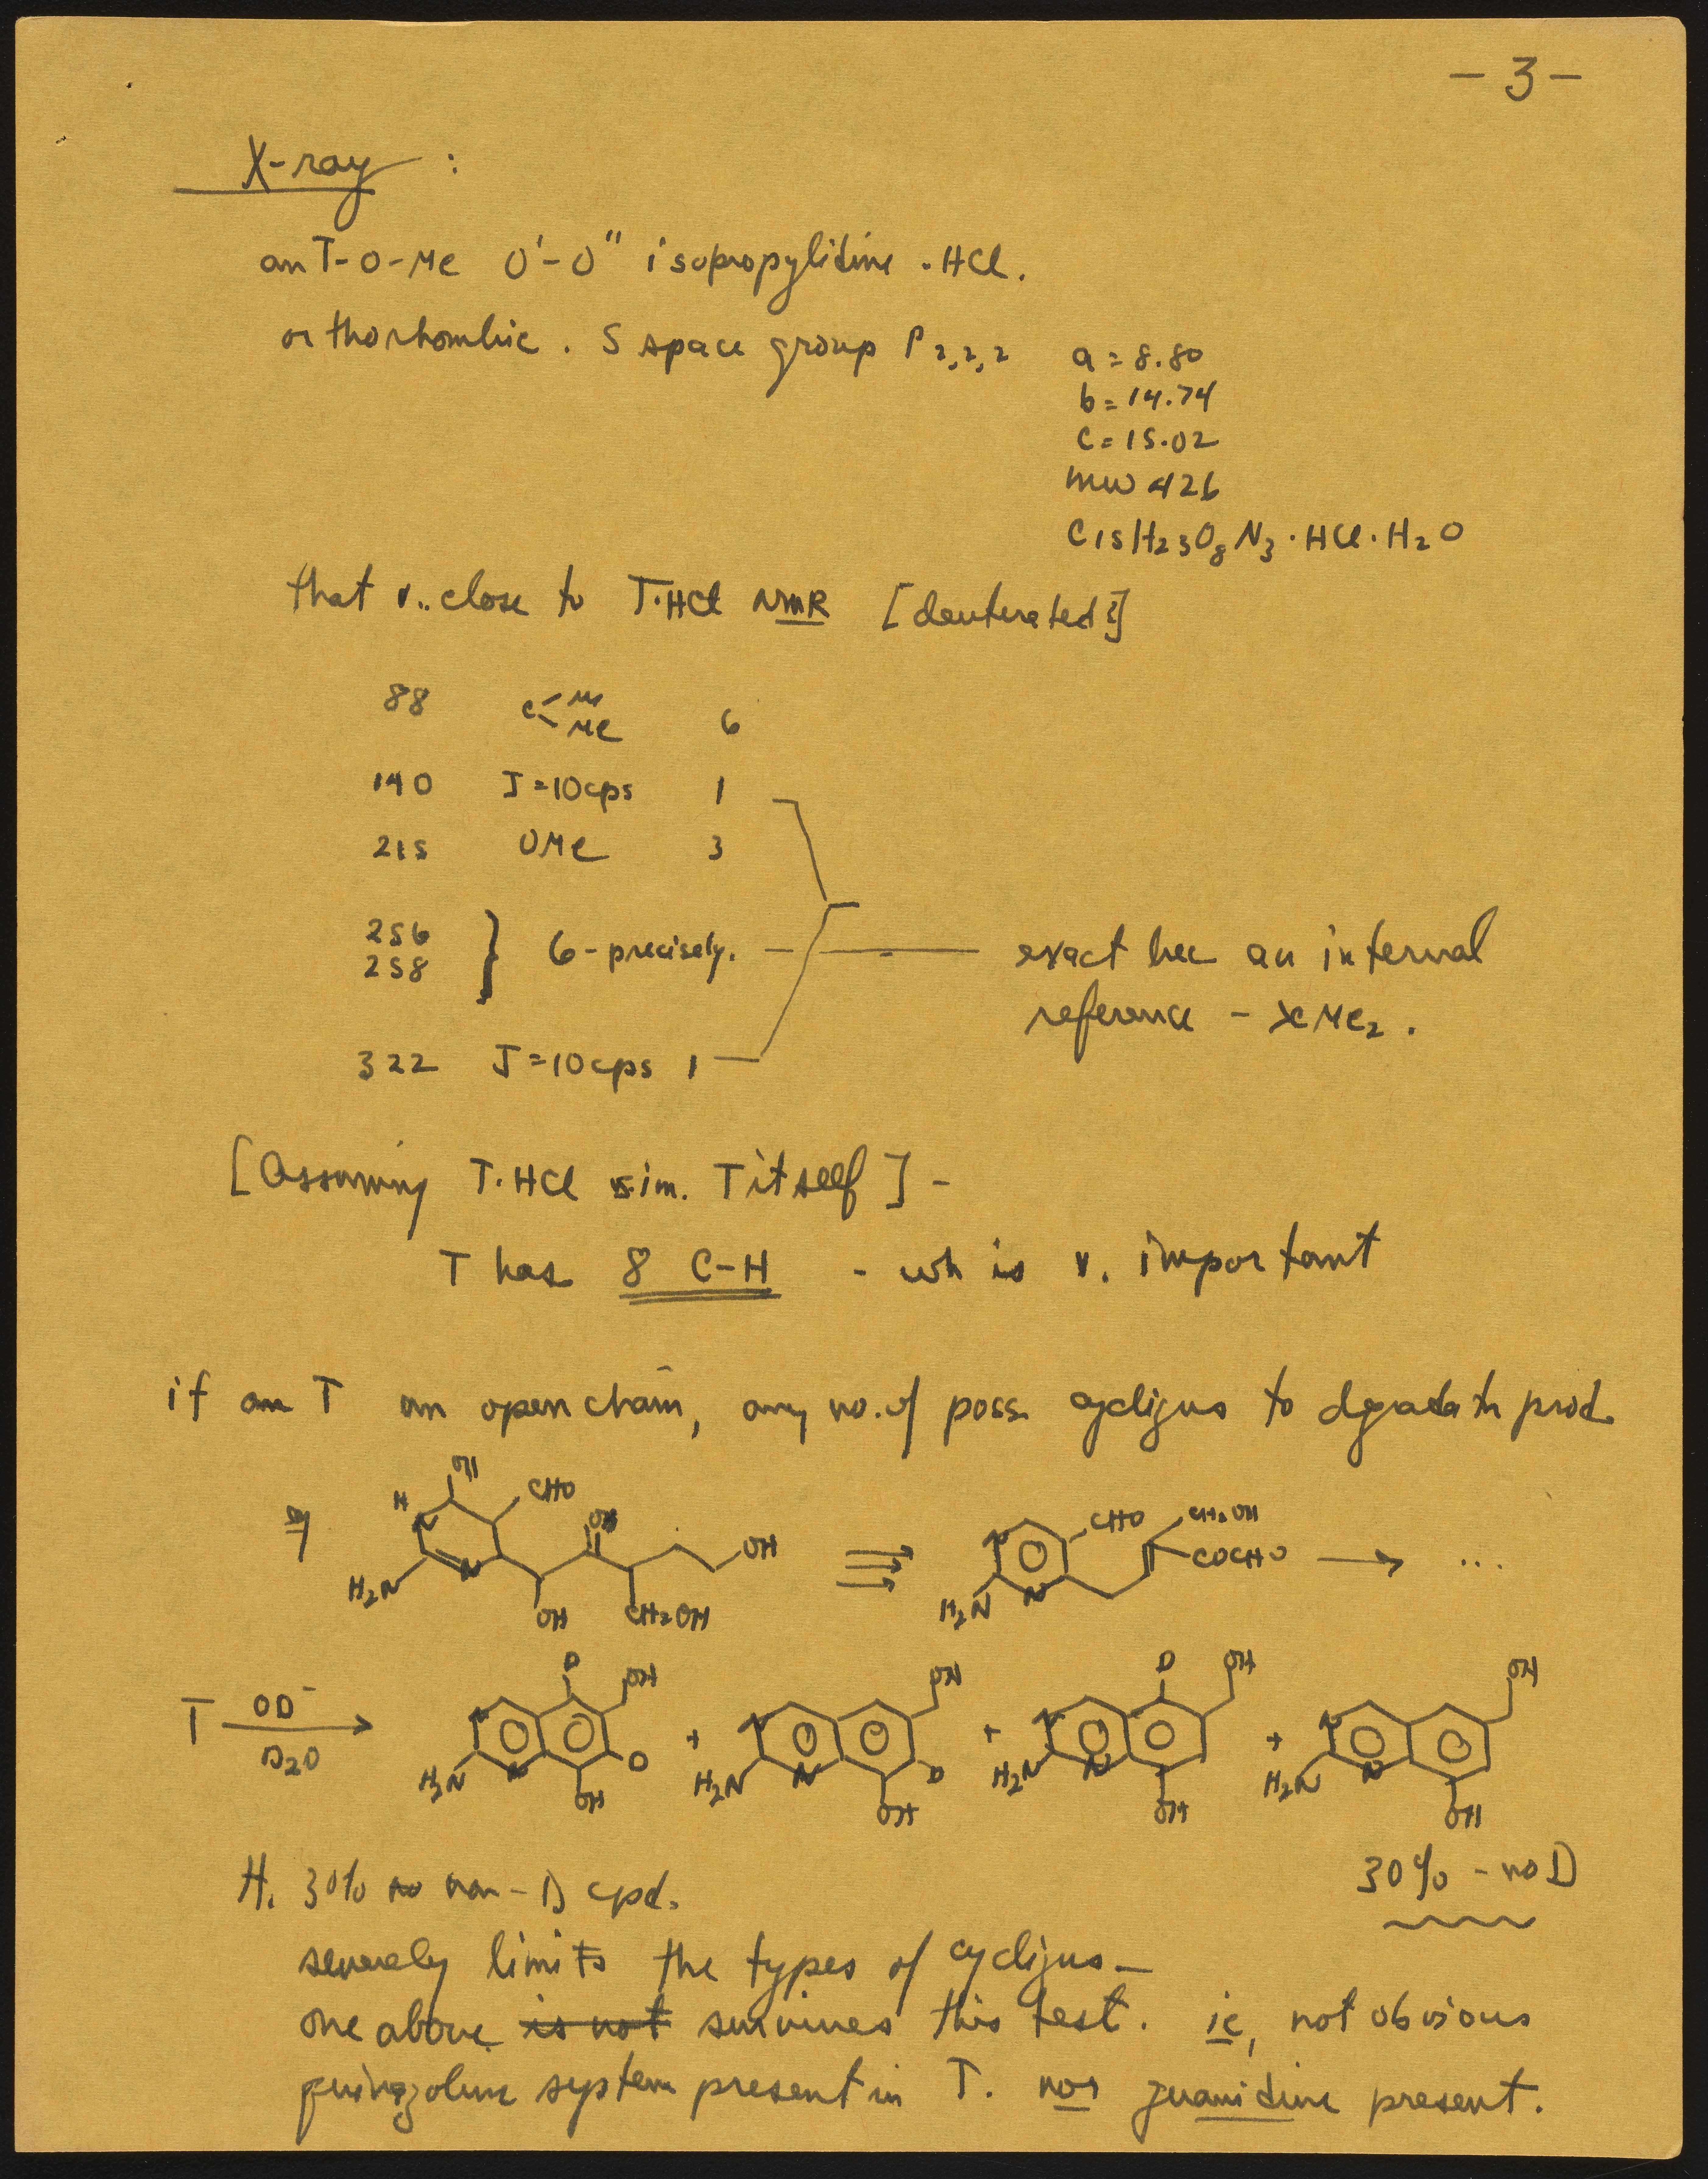 - 3 -
X-ray :
an T-O-Me O'-O" isopropylidine . HCl.
orthorhombic . S space group P 2,2,2
a = 8.80
b = 14.74
c = 15.02
mw 426
C15H23O8N3 · HCl · H2O
that v. close to T·HCl NMR [deuterated]
88 C Me Me 6
140 J = 10 cps 1
215 OMe 3
256
258 } 6 - precisely.
exact bec an internal
reference - >CMe2 .
322 J = 10 cps 1
[Assuming T.HCl sim. T itself] -
T has 8 C-H - wh is v. important
if an T an open chain, any no. of poss. cyclizns to degradatn prod.
eg H N OH CHO OH OH H2N N OH CH2OH
N CHO CH2OH COCHO H2N N → ...
T OD- D2O → N D OH H2N N D OH + N OH H2N N D OH + N D OH H2N N OH + N OH H2N N OH
30% - no D
H. 30% no non-D cpd.
severely limits the types of cyclizns -
one above is not survives this test. ie, not obvious
quinazoline system present in T. nor guanidine present.